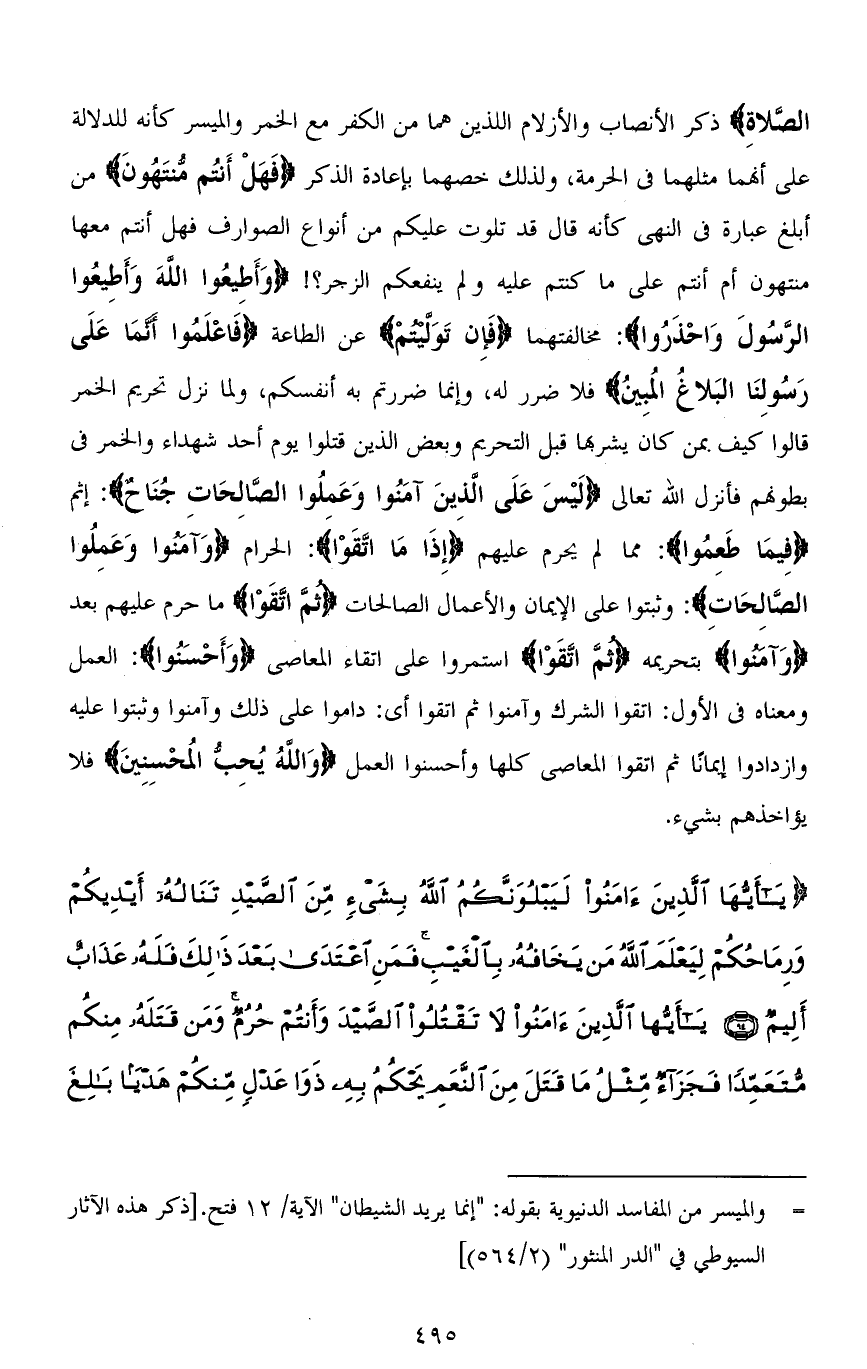 الصَّلَاةِ﴾ ذكر الأنصاب والأزلام اللذين هما من الكفر مع الخمر والميسر كأنه للدلالة
على أنهما مثلهما فى الحرمة، ولذلك خصهما بإعادة الذكر ﴿فَهَلْ أَنتُم مُّنتَهُونَ﴾ من
أبلغ عبارة فى النهى كأنه قال قد تلوت عليكم من أنواع الصوارف فهل أنتم معها
منتهون أم أنتم على ما كنتم عليه و لم ينفعكم الزجر؟! ﴿وَأَطِيعُوا اللَّهَ وَأَطِيعُوا
الرَّسُولَ وَاحْذَرُوا﴾: مخالفتهما ﴿فَإِن تَوَلَّيْتُمْ﴾ عن الطاعة ﴿فَاعْلَمُوا أَنَّمَا عَلَى
رَسُولِنَا البَلاغُ المُبِينُ﴾ فلا ضرر له، وإنما ضررتم به أنفسكم، ولما نزل تحريم الخمر
قالوا كيف بمن كان يشربها قبل التحريم وبعض الذين قتلوا يوم أحد شهداء والخمر فى
بطونهم فأنزل الله تعالى ﴿لَيْسَ عَلَى الَّذِينَ آمَنُوا وَعَمِلُوا الصَّالِحَاتِ جُنَاحٌ﴾: إثم
﴿فِيمَا طَعِمُوا﴾: مما لم يحرم عليهم ﴿إِذَا مَا اتَّقَوْا﴾: الحرام ﴿وَآمَنُوا وَعَمِلُوا
الصَّالِحَاتِ﴾: وثبتوا على الإيمان والأعمال الصالحات ﴿ثُمَّ اتَّقَوْا﴾ ما حرم عليهم بعد
﴿وَآمَنُوا﴾ بتحريمه ﴿ثُمَّ اتَّقَوْا﴾ استمروا على اتقاء المعاصى ﴿وَأَحْسَنُوا﴾: العمل
ومعناه فى الأول: اتقوا الشرك وآمنوا ثم اتقوا أى: داموا على ذلك وآمنوا وثبتوا عليه
وازدادوا إيمانًا ثم اتقوا المعاصى كلها وأحسنوا العمل ﴿وَاللَّهُ يُحِبُّ المُحْسِنِينَ﴾ فلا
يؤاخذهم بشيء.
﴿ يَـٰٓأَيُّهَا ٱلَّذِينَ ءَامَنُوا۟ لَيَبْلُوَنَّكُمُ ٱللَّهُ بِشَىْءٍ مِّنَ ٱلصَّيْدِ تَنَالُهُۥٓ أَيْدِيكُمْ
وَرِمَاحُكُمْ لِيَعْلَمَ ٱللَّهُ مَن يَخَافُهُۥ بِٱلْغَيْبِ ۚ فَمَنِ ٱعْتَدَىٰ بَعْدَ ذَٰلِكَ فَلَهُۥ عَذَابٌ
أَلِيمٌ ﴿٩٤﴾ يَـٰٓأَيُّهَا ٱلَّذِينَ ءَامَنُوا۟ لَا تَقْتُلُوا۟ ٱلصَّيْدَ وَأَنتُمْ حُرُمٌ ۚ وَمَن قَتَلَهُۥ مِنكُم
مُّتَعَمِّدًا فَجَزَآءٌ مِّثْلُ مَا قَتَلَ مِنَ ٱلنَّعَمِ يَحْكُمُ بِهِۦ ذَوَا عَدْلٍ مِّنكُمْ هَدْيًۢا بَـٰلِغَ
= والميسر من المفاسد الدنيوية بقوله: "إنما يريد الشيطان" الآية/ ١٢ فتح.[ذكر هذه الآثار
السيوطي في "الدر المنثور" (٥٦٤/٢)]
٤٩٥